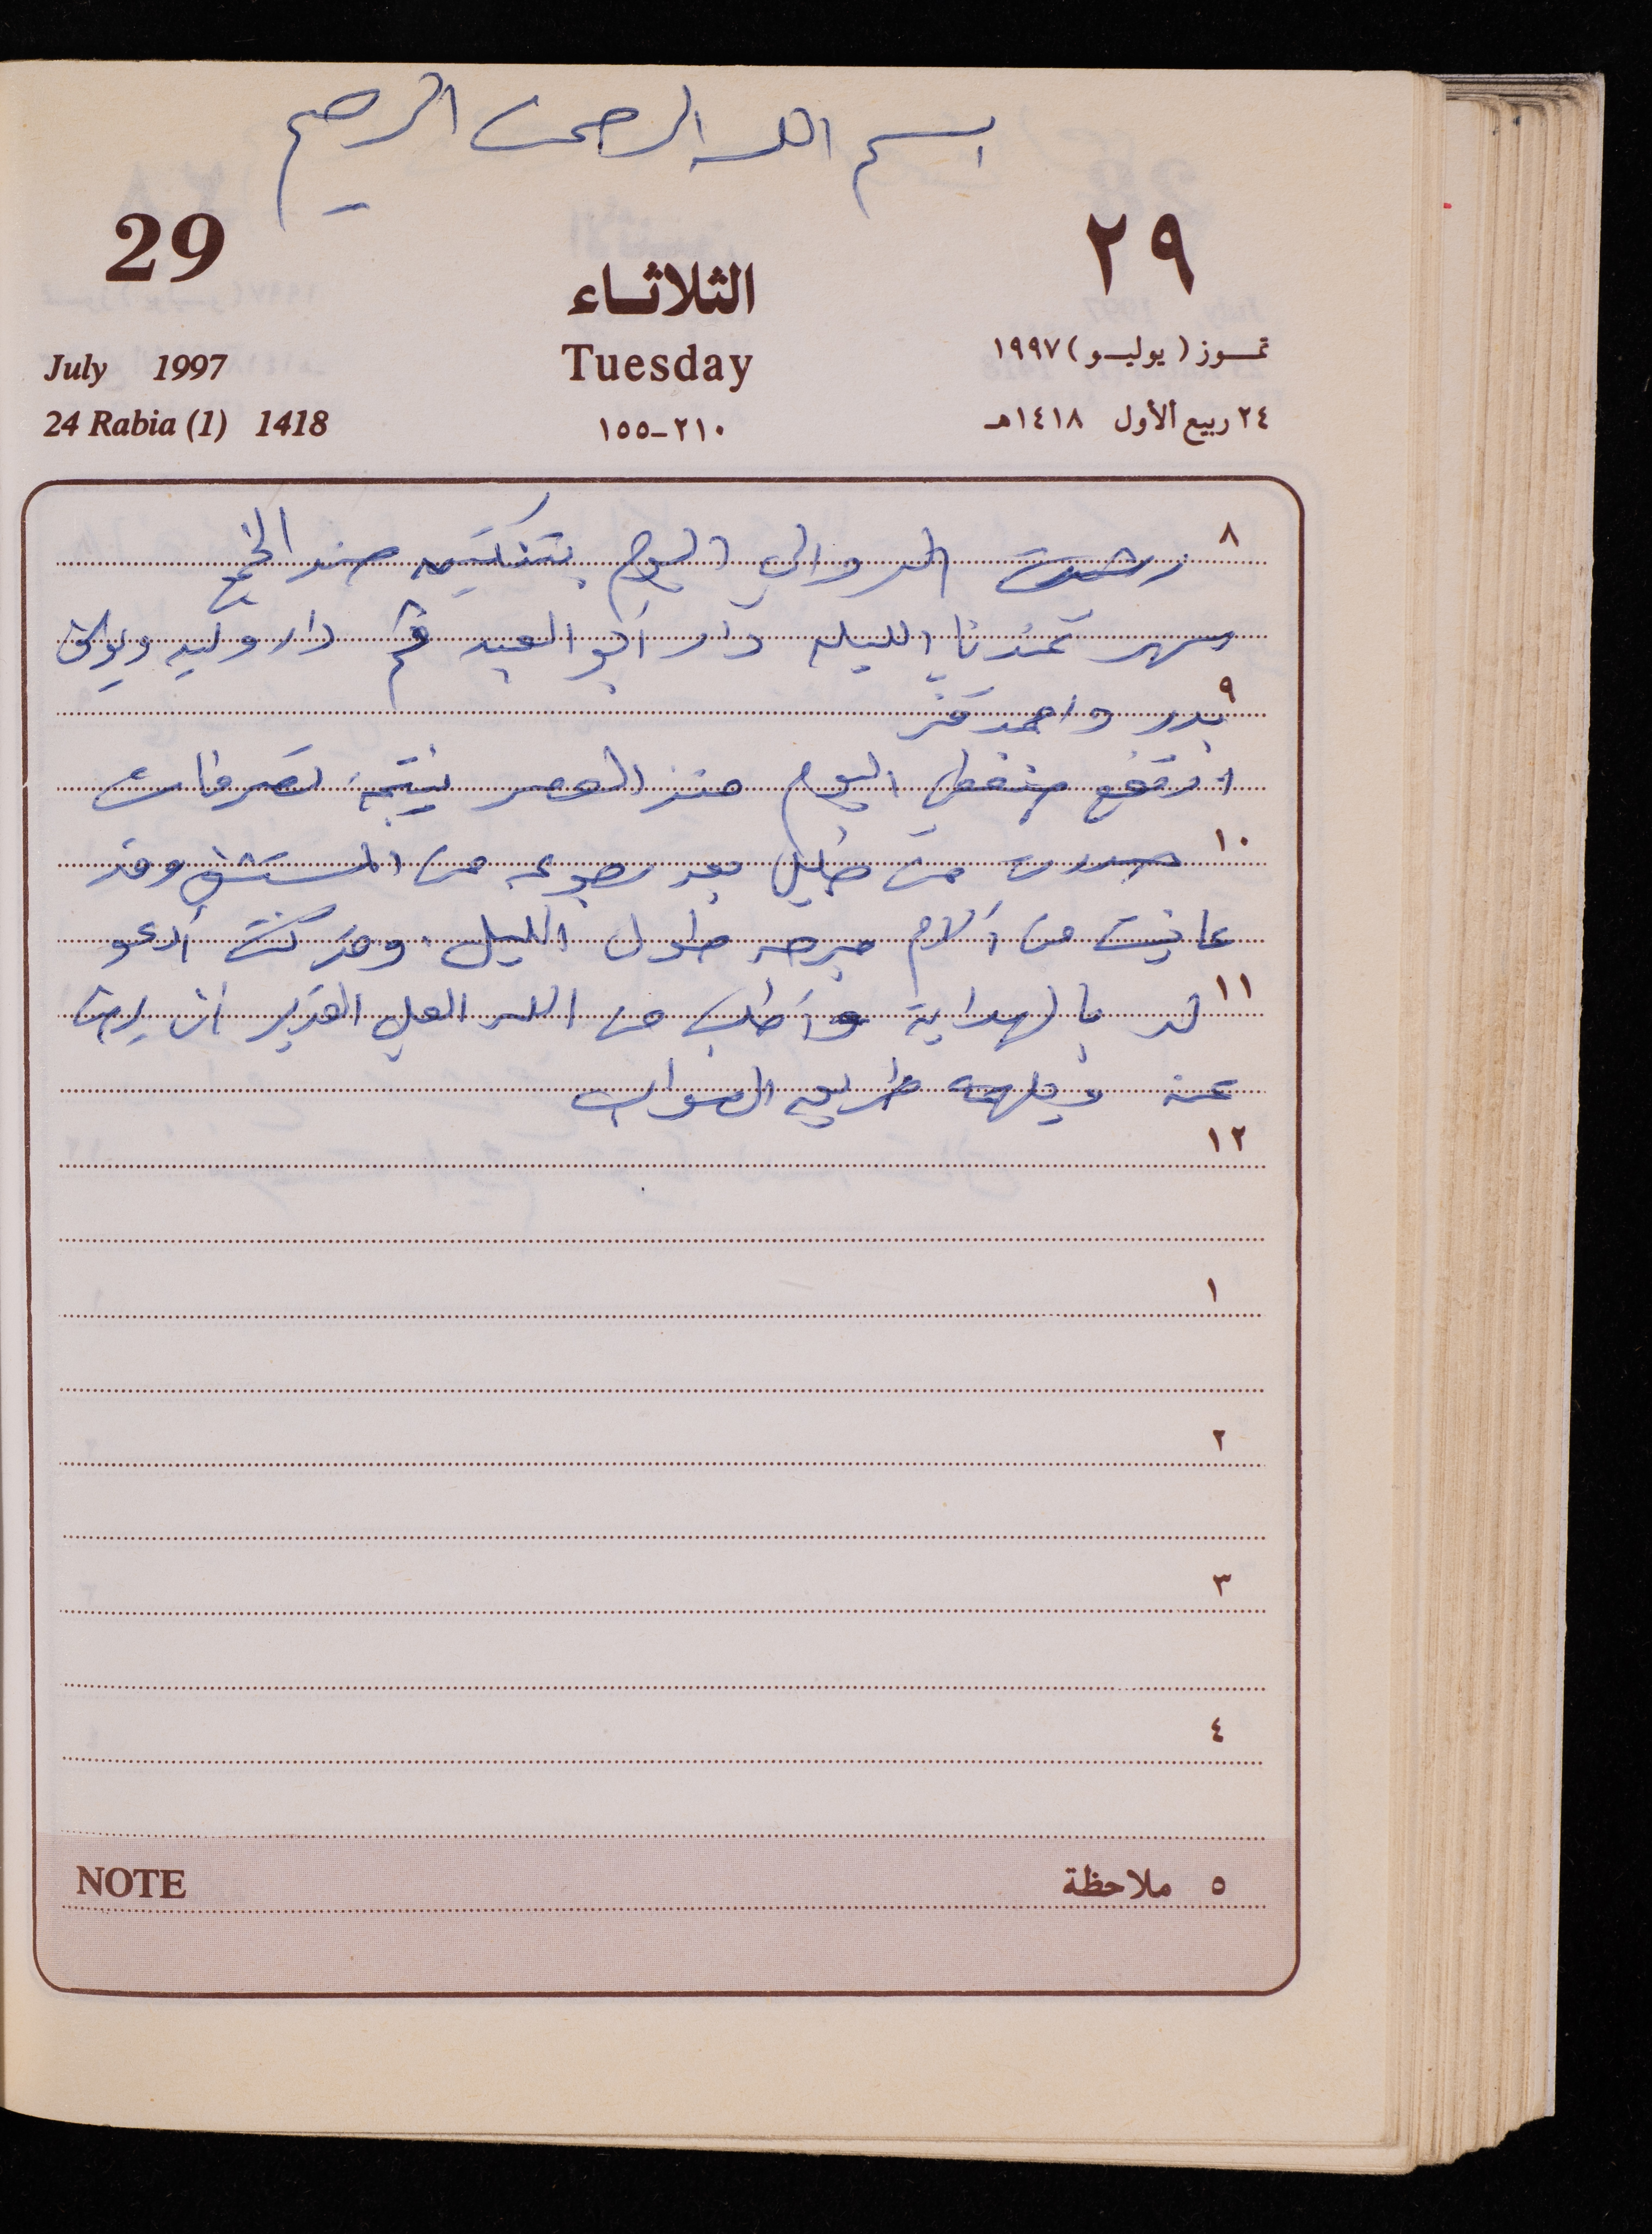 بسم الله الرحمن الرحيم
29 ٢٩
الثلاثاء
July 1997 Tuesday تموز (يوليو) ١٩٩٧
24 Rabia (1) 1418 ٢١٠-١٥٥ ٢٤ ربيع الأول ١٤١٨هـ
٨
رشيت الدوالي اليوم ضد الخمج
سهر عندنا الليلة دار أبو العبد ثم دار وليد
٩
بدر واحمد
ارتفع ضغطي اليوم منذ العصر نتيجة تصرفات
١٠
صدرت من خليل بعد رجوعه من المستشفى وقد
عانيت من آلام مبرحه طول الليل. وقد كنت أدعو
١١
له بالهداية وأطلب من الله العلي القدير ان
عنه ويلهمه طريق الصواب
١٢
١
٢
٣
٤
NOTE ٥ ملاحظة